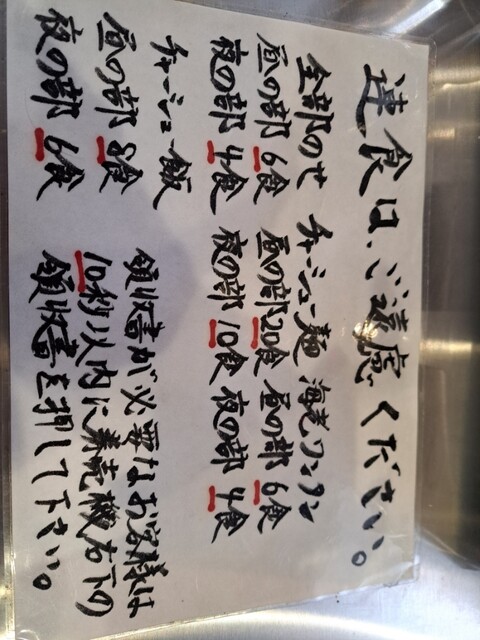 連食は、ご遠慮ください。
全部のせ
昼の部 6食
夜の部 4食
チャーシュー麺
昼の部20食
夜の部10食
海老ワンタン
昼の部 6食
夜の部 4食
チャーシュー飯
昼の部 8食
夜の部 6食
領収書が必要なお客様は
10秒以内に券売機右下の
領収書を押して下さい。